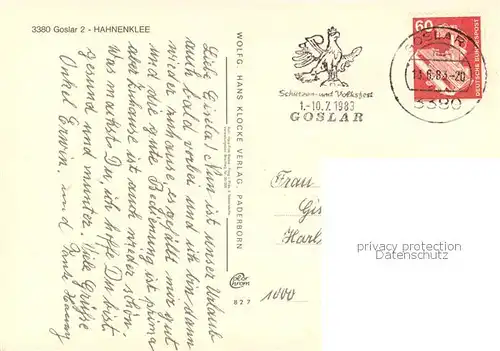 3380 Goslar 2 - HAHNENKLEE
Liebe Gisela! Nun ist unser Urlaub
auch bald vorbei und ich bin dann
wieder zuhause, es gefällt mir gut
und die gute Bedienung ist prima
aber zuhause ist auch wieder schön.
Was machst Du, ich hoffe Du bist
gesund und munter. Viele Grüße
Onkel Erwin. und Tante
WOLFG. HANS KLOCKE VERLAG, PADERBORN
827
Schützen- und Volksfest
1.-10.7.1983
GOSLAR
GOSLAR
13.6.83-20
3380
60
DEUTSCHE BUNDESPOST
Frau
Gis
Karl
1000
privacy protection
Datenschutz